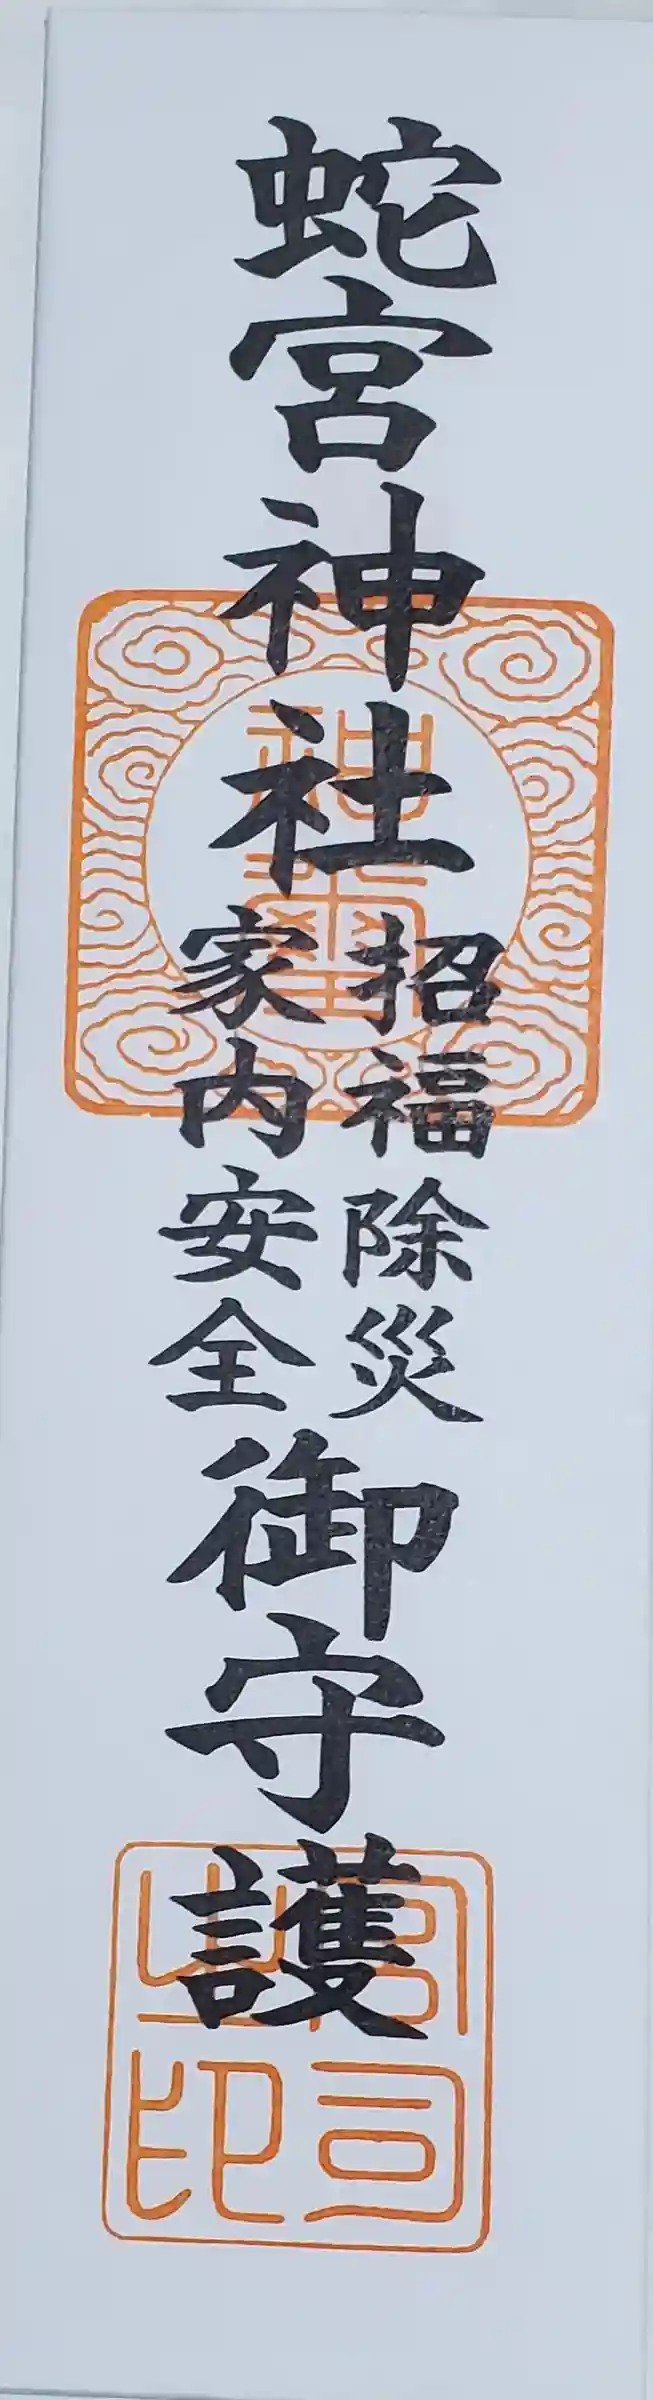 蛇宮神社
招福除災
家内安全
御守護
神璽
宮司之印